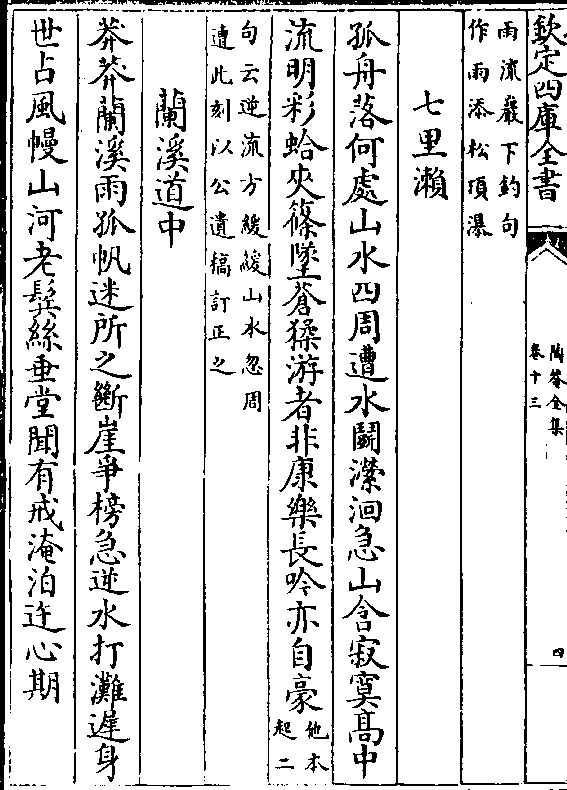 欽定四庫全書
陶菴全集
卷十三
四
雨流巖下釣句
作雨添松頂瀑
七里瀨
孤舟落何處山水四周遭水鬭瀠洄急山含寂寞高中
流明彩蛤夾篠墜蒼猱游者非康樂長吟亦自豪
他本
起二
句云逆流方緩緩山水忽周
遭此刻以公遺稿訂正之
蘭溪道中
莽莽蘭溪雨孤帆迷所之斷崖爭榜急逆水打灘遲身
世占風幔山河老鬂絲垂堂聞有戒淹泊迕心期